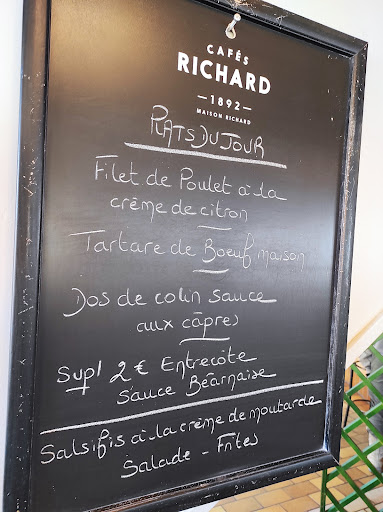 CAFÉS
RICHARD
— 1892 —
MAISON RICHARD
PLATS DU JOUR
Filet de Poulet à la
crême de citron
Tartare de Boeuf maison
Dos de colin sauce
aux câpres
Supl 2€ Entrecôte
Sauce Béarnaise
Salsifis à la crème de moutarde
Salade - Frites